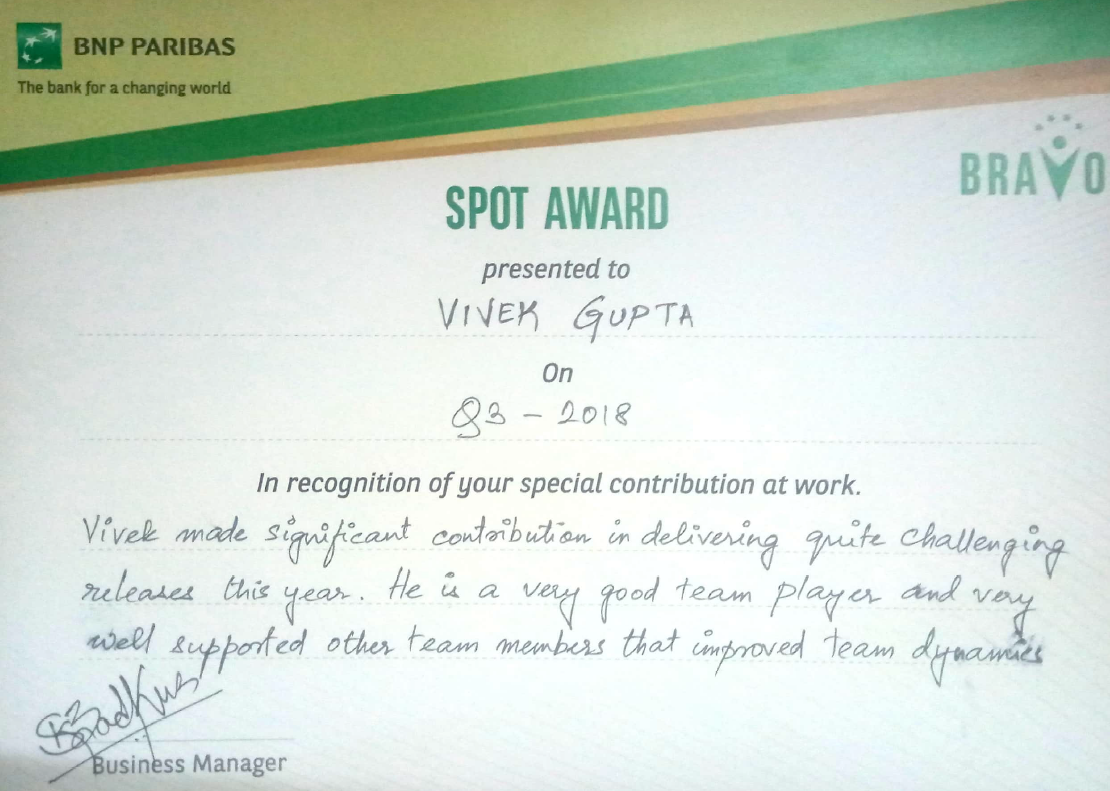 BNP PARIBAS
The bank for a changing world
BRAVO
SPOT AWARD
presented to
VIVEK GUPTA
On
Q3 - 2018
In recognition of your special contribution at work.
Vivek made significant contribution in delivering quite challenging
releases this year. He is a very good team player and very
well supported other team members that improved team dynamics
Business Manager